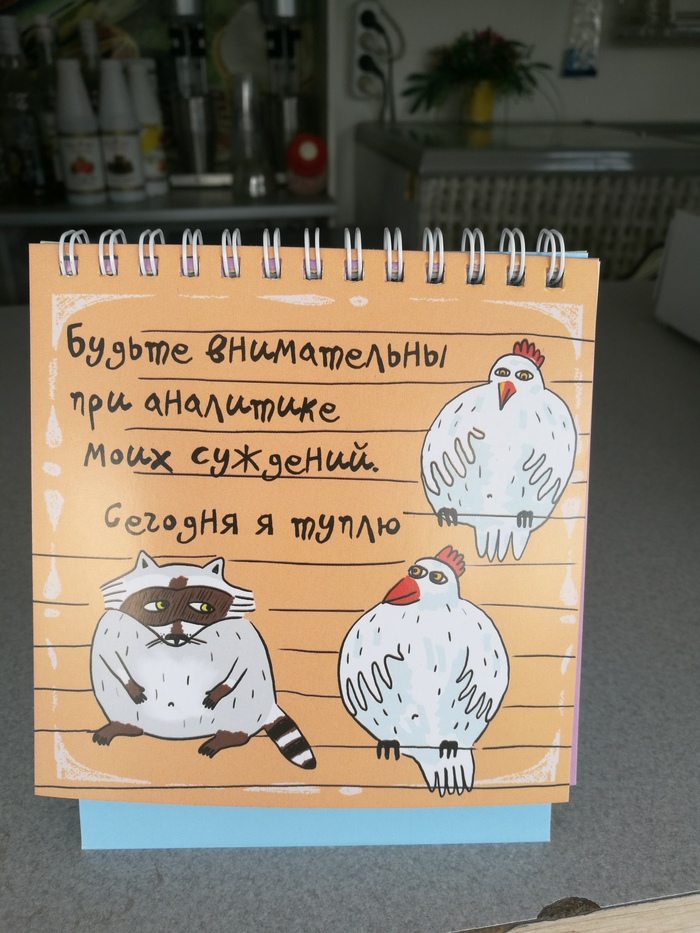 Будьте внимательны
при аналитике
моих суждений.
Сегодня я туплю